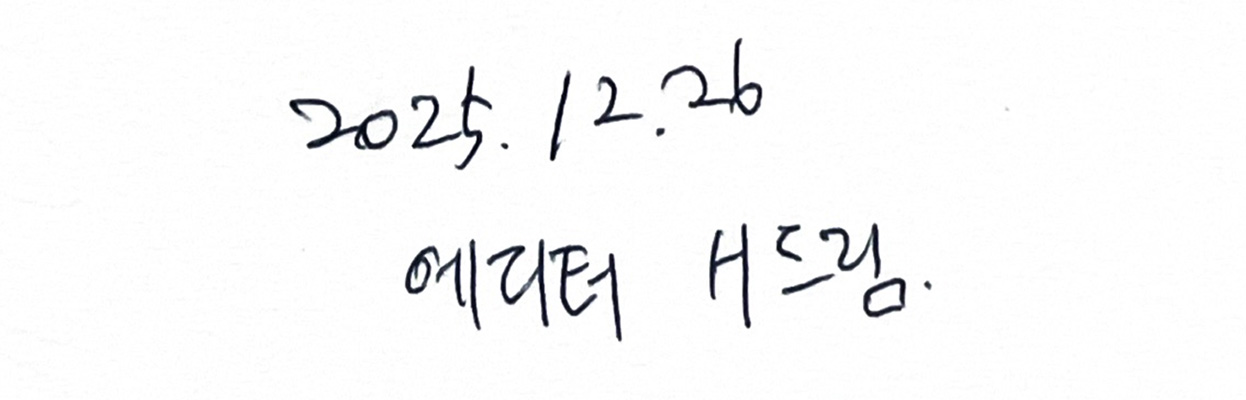 2025. 12. 26
에디터 H드림.